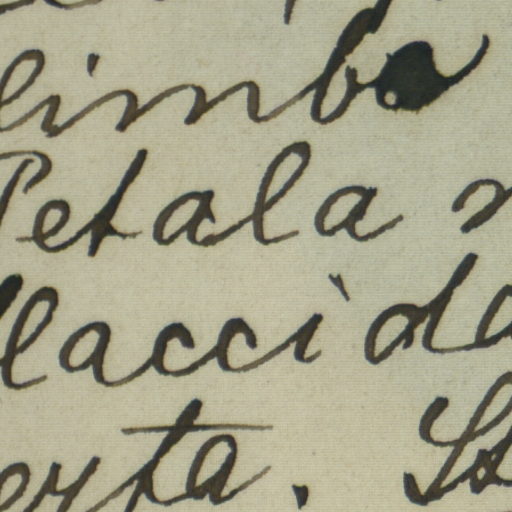 limba
Petala
flaccida
erta. St